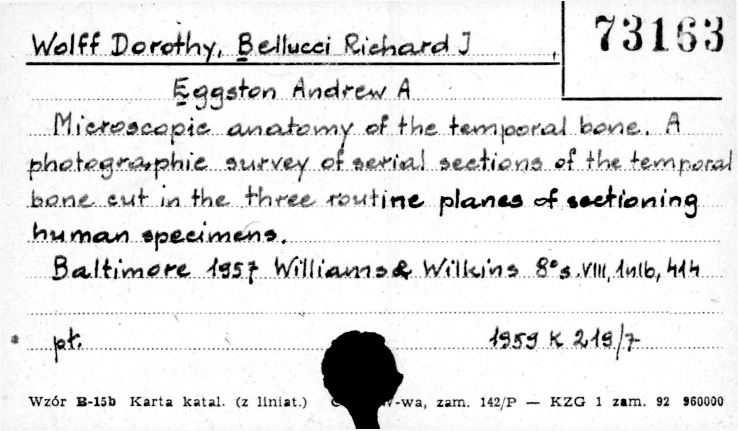 Wolff Dorothy, Bellucci Richard J
73163
Eggston Andrew A
Microscopic anatomy of the temporal bone. A
photographic survey of serial sections of the temporal
bone cut in the three routine planes of sectioning
human specimens.
Baltimore 1957 Williams & Wilkins 8° s. VIII, 1nlb, 414
pł. 1959 K 219/7
Wzór B-15b Karta katal. (z liniat.) W-wa, zam. 142/P — KZG 1 zam. 92 960000